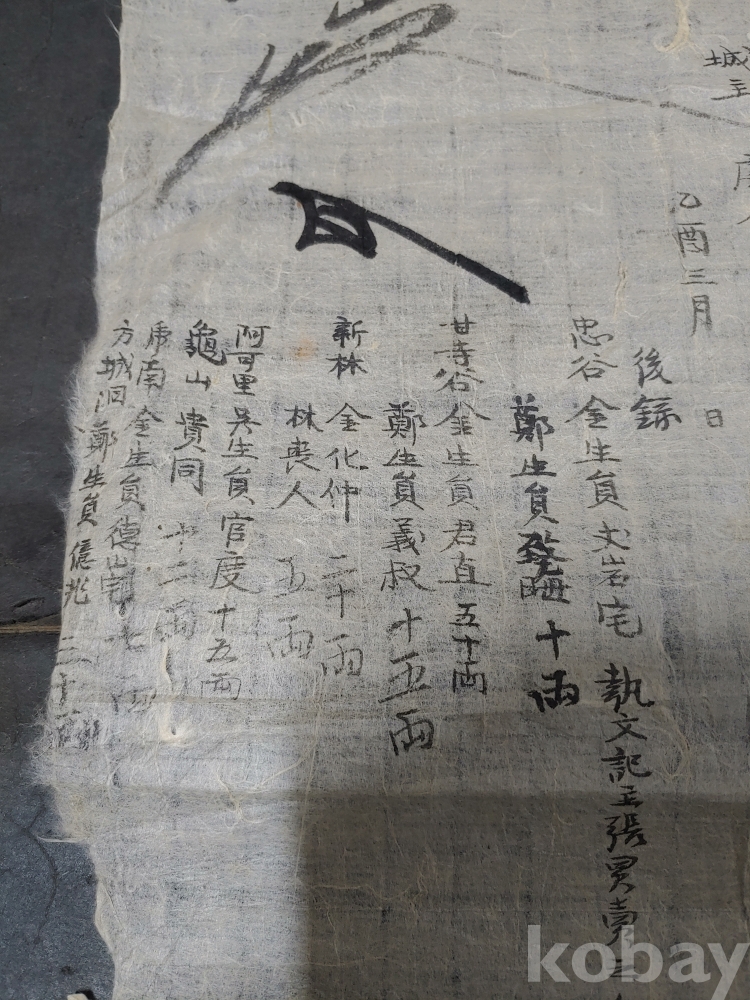 城主
乙酉三月 日
後錄
忠谷金生員文岩宅 執文記主張買賣三
鄭生員 十兩
甘寺谷金生員君直五十兩
鄭生員義叔十五兩
新林 金化仲 二十兩
林喪人 五兩
阿可里吳生員官度十五兩
龜山 貴同 十二兩
南金生員德山宅七兩
方城洞鄭生員億兆 三十兩
kobay